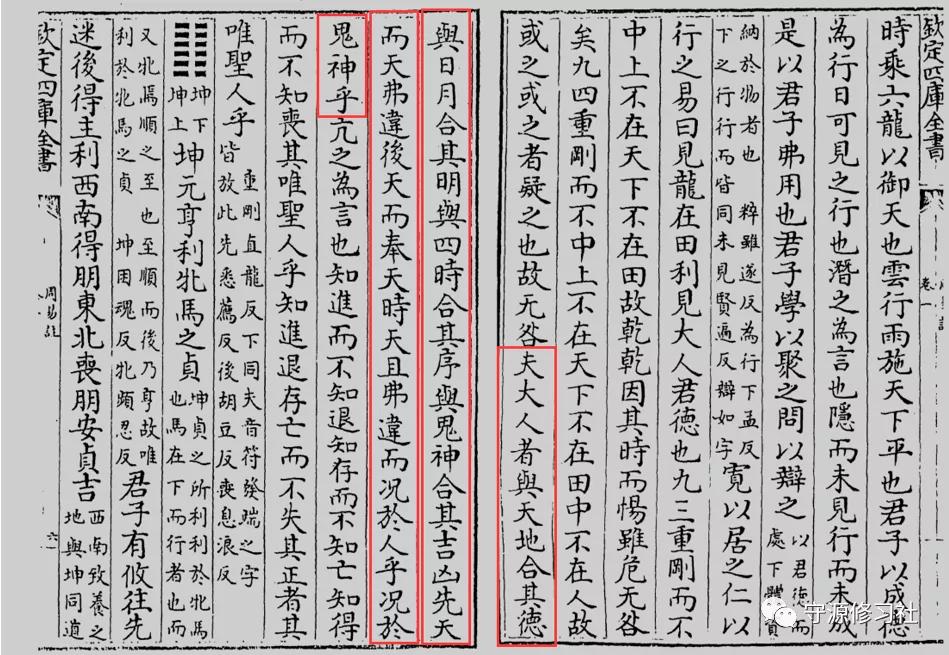 欽定四庫全書
卷一
時乘六龍以御天也雲行雨施天下平也君子以成德
為行日可見之行也潛之為言也隱而未見行而未成
是以君子弗用也君子學以聚之問以辯之以君德而處下體資
納於物者也 粹雖遂反為行下孟反下之行行而皆同未見賢遍反辯如字寬以居之仁以
行之易曰見龍在田利見大人君德也九三重剛而不
中上不在天下不在田故乾乾因其時而惕雖危无咎
矣九四重剛而不中上不在天下不在田中不在人故
或之或之者疑之也故无咎夫大人者與天地合其德
與日月合其明與四時合其序與鬼神合其吉凶先天
而天弗違後天而奉天時天且弗違而況於人乎況於
鬼神乎亢之為言也知進而不知退知存而不知亡知得
而不知喪其唯聖人乎知進退存亡而不失其正者其
唯聖人乎重剛直龍反下同夫音符發端之字皆放此先悉薦反後胡豆反喪息浪反
䷁坤下坤上坤元亨利牝馬之貞坤貞之所利利於牝馬也馬在下而行者也而
又牝馬順之至也至順而後乃亨故唯利於牝馬之貞 坤困魂反牝頻忍反君子有攸往先
迷後得主利西南得朋東北喪朋安貞吉西南致養之地與坤同道
欽定四庫全書
周易註
六
宁源修习社